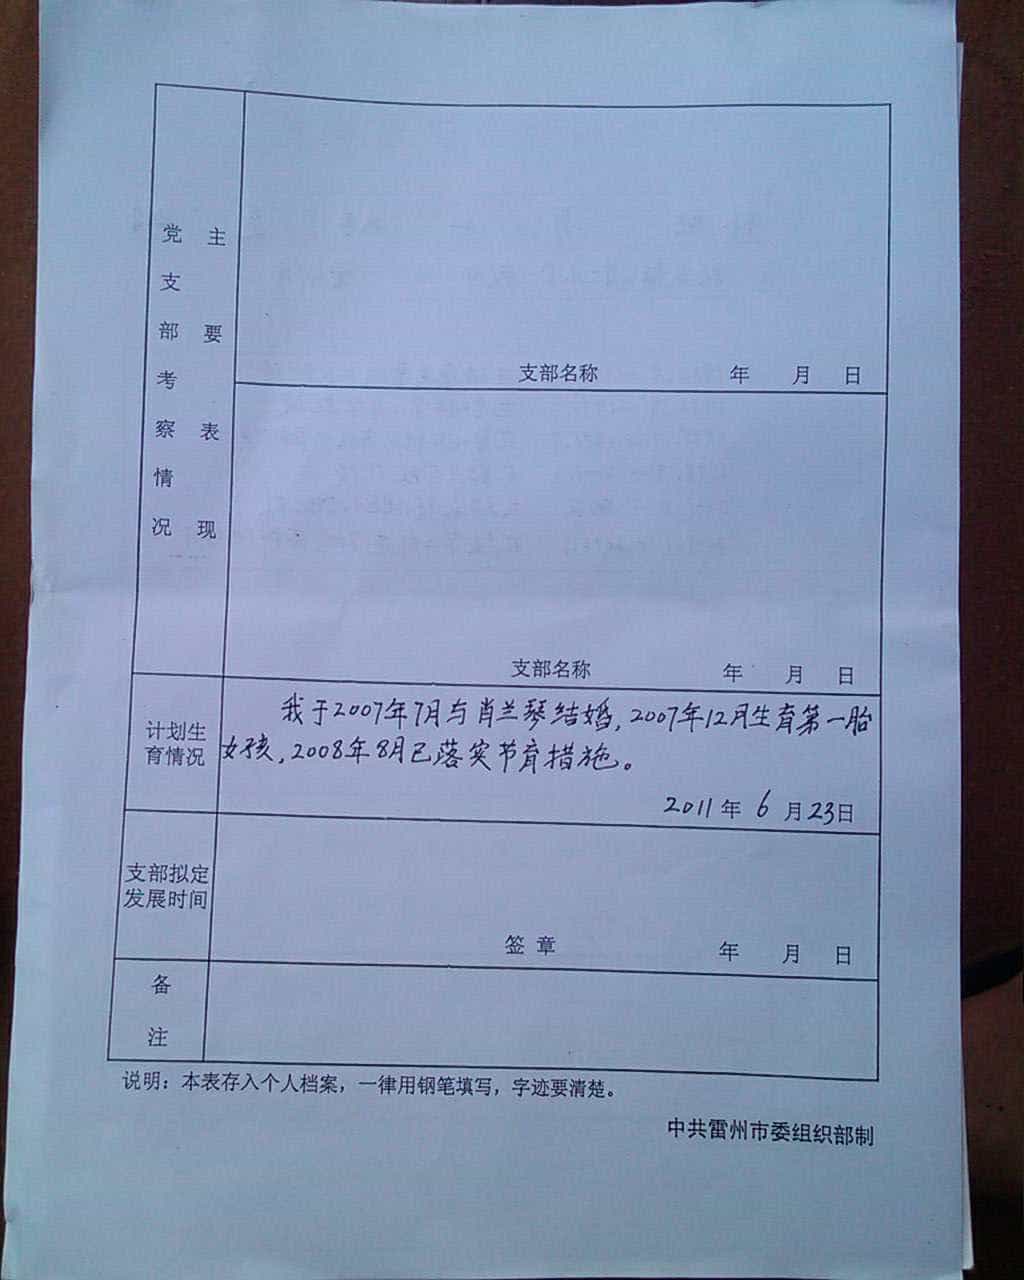 党支部考察情况
主要表现
支部名称 年 月 日
支部名称 年 月 日
计划生
育情况
我于2007年7月与肖兰琴结婚,2007年12月生育第一胎
女孩,2008年8月已落实节育措施。
2011年6月23日
支部拟定
发展时间
签章 年 月 日
备
注
说明：本表存入个人档案，一律用钢笔填写，字迹要清楚。
中共雷州市委组织部制